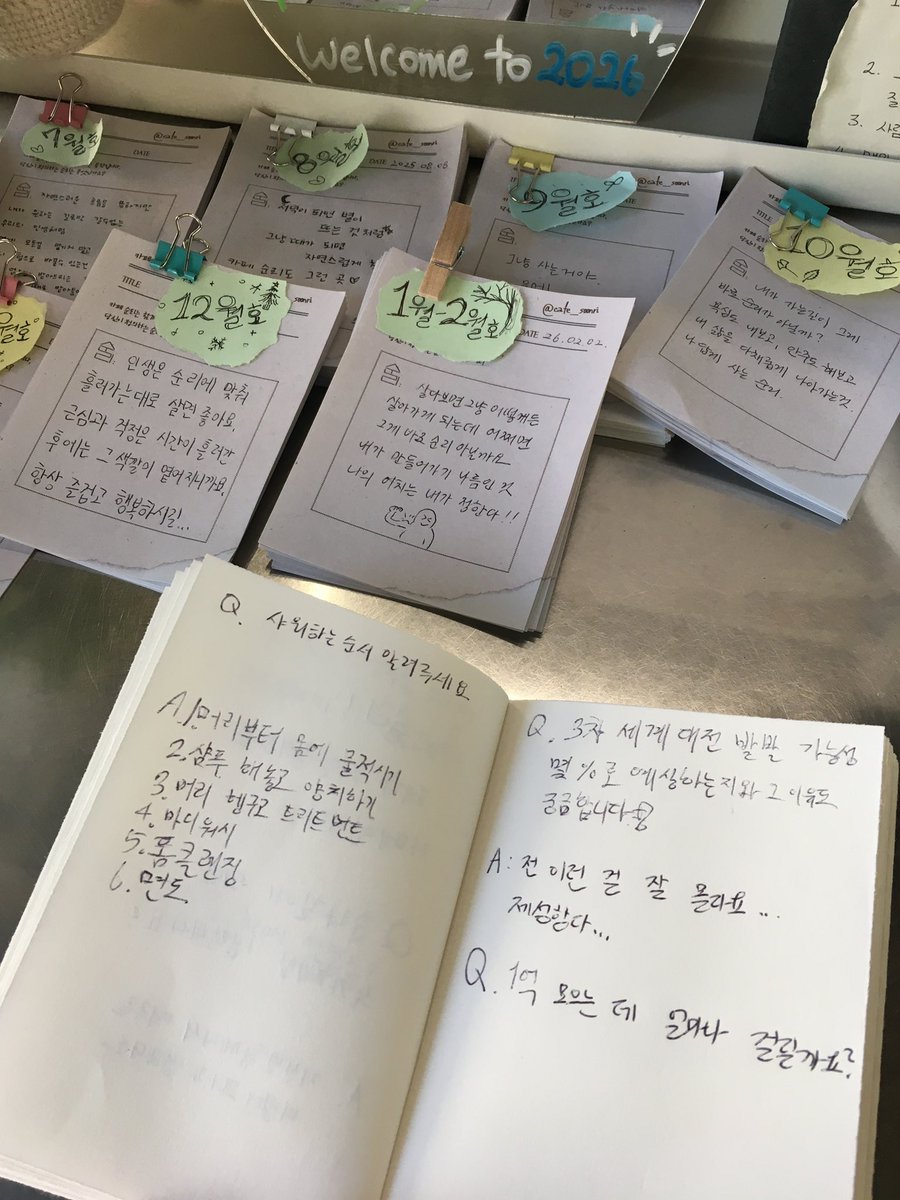 welcome to 2026
2.
3. 사람
7월호
@cafe_soonri
DATE
8월호
DATE 2025.08.06
저녁이 되면 별이
뜨는 것처럼
그냥 그대가 되면
자연스럽게
카페 순리도
그런 곳
9월호
@cafe_soonri
그냥 사는거야
10월호
TITLE
내가 가는길이 그게
바로 순리가 아닐까?
욕심도 내보고, 안주도 해보고
내 삶을 다채롭게 나아가는것.
나답게
사는 순리
월호
12월호
TITLE
숨.
인생은 순리에 맞춰
흘러가는대로 살면 좋아요.
근심과 걱정은 시간이 흘러간
후에는 그 색깔이 옅어지니까요.
항상 즐겁고 행복하시길...
1월-2월호
@cafe_soonri
TITLE
DATE 26.02.02.
숨.
살다보면 그냥 어떻게든
살아가게 되는데 어쩌면
그게 바로 순리 아닐까요
내가 만들어가기 나름인 것
나의 가치는 내가 정한다!!
Q. 샤워하는 순서 알려주세요
A. 1. 머리부터 몸에 물적시기
2. 샴푸 해놓고 양치하기
3. 머리 헹구고 트리트먼트
4. 바디워시
5. 폼클렌징
6. 면도
Q. 3차 세계 대전 발발 가능성
몇 %로 예상하는지와 그 이유도
궁금합니다
A: 전 이런 걸 잘 몰라요...
제성함다...
Q. 1억 모으는 데 얼마나 걸릴까요?